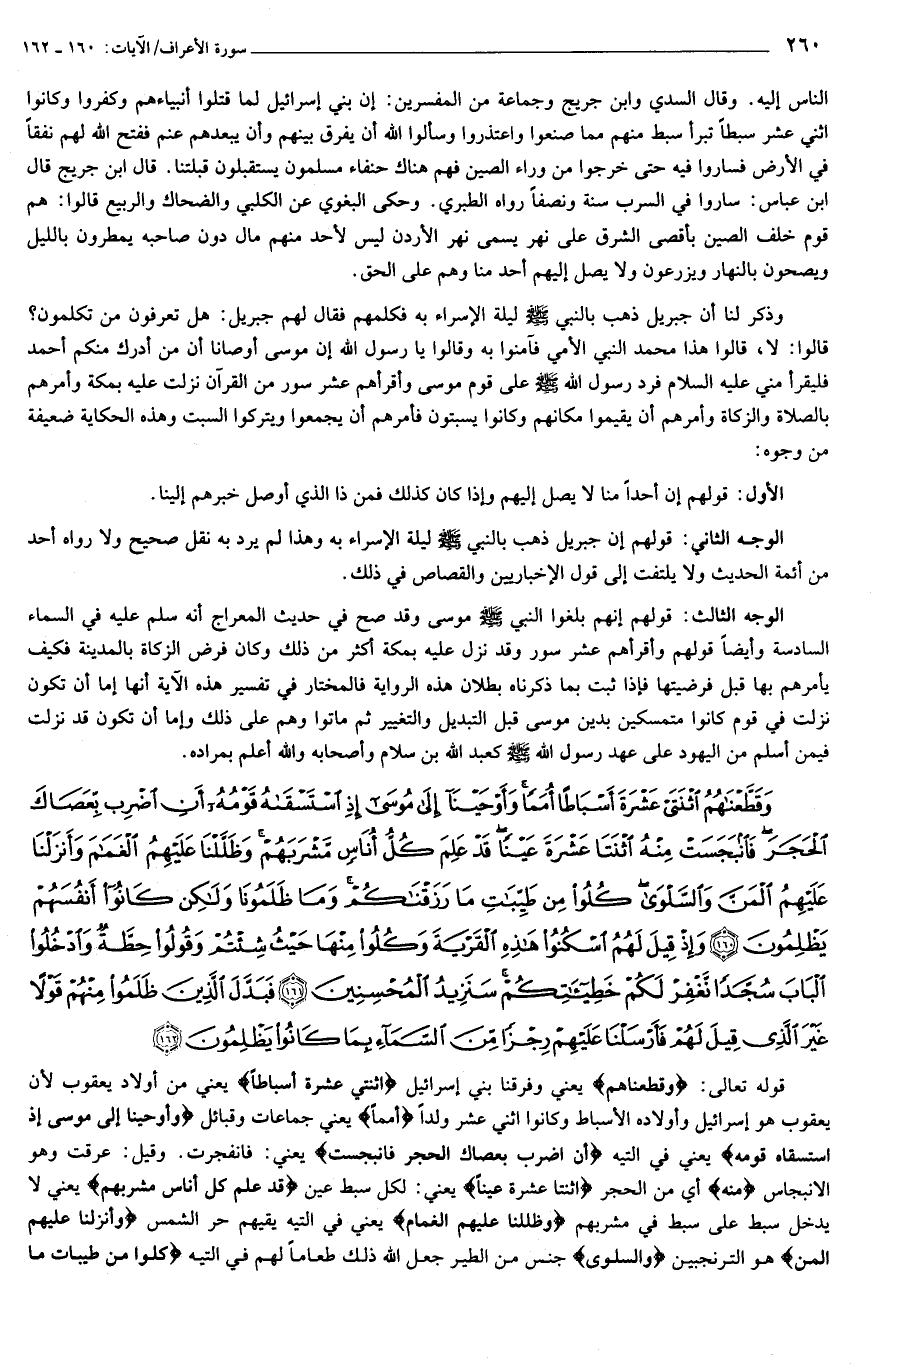 ٢٦٠ سورة الأعراف/ الآيات: ١٦٠ ـ ١٦٢
الناس إليه. وقال السدي وابن جريج وجماعة من المفسرين: إن بني إسرائيل لما قتلوا أنبياءهم وكفروا وكانوا
اثني عشر سبطاً تبرأ سبط منهم مما صنعوا واعتذروا وسألوا الله أن يفرق بينهم وأن يبعدهم عنم ففتح الله لهم نفقاً
في الأرض فساروا فيه حتى خرجوا من وراء الصين فهم هناك حنفاء مسلمون يستقبلون قبلتنا. قال ابن جريج قال
ابن عباس: ساروا في السرب سنة ونصفاً رواه الطبري. وحكى البغوي عن الكلبي والضحاك والربيع قالوا: هم
قوم خلف الصين بأقصى الشرق على نهر يسمى نهر الأردن ليس لأحد منهم مال دون صاحبه يمطرون بالليل
ويصحون بالنهار ويزرعون ولا يصل إليهم أحد منا وهم على الحق.
وذكر لنا أن جبريل ذهب بالنبي ﷺ ليلة الإسراء به فكلمهم فقال لهم جبريل: هل تعرفون من تكلمون؟
قالوا: لا، قالوا هذا محمد النبي الأمي فآمنوا به وقالوا يا رسول الله إن موسى أوصانا أن من أدرك منكم أحمد
فليقرأ مني عليه السلام فرد رسول الله ﷺ على قوم موسى وأقرأهم عشر سور من القرآن نزلت عليه بمكة وأمرهم
بالصلاة والزكاة وأمرهم أن يقيموا مكانهم وكانوا يسبتون فأمرهم أن يجمعوا ويتركوا السبت وهذه الحكاية ضعيفة
من وجوه:
الأول: قولهم إن أحداً منا لا يصل إليهم وإذا كان كذلك فمن ذا الذي أوصل خبرهم إلينا.
الوجه الثاني: قولهم إن جبريل ذهب بالنبي ﷺ ليلة الإسراء به وهذا لم يرد به نقل صحيح ولا رواه أحد
من أئمة الحديث ولا يلتفت إلى قول الإخباريين والقصاص في ذلك.
الوجه الثالث: قولهم إنهم بلغوا النبي ﷺ موسى وقد صح في حديث المعراج أنه سلم عليه في السماء
السادسة وأيضاً قولهم وأقرأهم عشر سور وقد نزل عليه بمكة أكثر من ذلك وكان فرض الزكاة بالمدينة فكيف
يأمرهم بها قبل فرضيتها فإذا ثبت بما ذكرناه بطلان هذه الرواية فالمختار في تفسير هذه الآية أنها إما أن تكون
نزلت في قوم كانوا متمسكين بدين موسى قبل التبديل والتغيير ثم ماتوا وهم على ذلك وإما أن تكون قد نزلت
فيمن أسلم من اليهود على عهد رسول الله ﷺ كعبد الله بن سلام وأصحابه والله أعلم بمراده.
وَقَطَّعْنَٰهُمُ ٱثْنَتَىْ عَشْرَةَ أَسْبَاطًا أُمَمًا ۚ وَأَوْحَيْنَآ إِلَىٰ مُوسَىٰٓ إِذِ ٱسْتَسْقَىٰهُ قَوْمُهُۥٓ أَنِ ٱضْرِب بِّعَصَاكَ
ٱلْحَجَرَ ۖ فَٱنۢبَجَسَتْ مِنْهُ ٱثْنَتَا عَشْرَةَ عَيْنًا ۖ قَدْ عَلِمَ كُلُّ أُنَاسٍ مَّشْرَبَهُمْ ۚ وَظَلَّلْنَا عَلَيْهِمُ ٱلْغَمَٰمَ وَأَنزَلْنَا
عَلَيْهِمُ ٱلْمَنَّ وَٱلسَّلْوَىٰ ۖ كُلُوا۟ مِن طَيِّبَٰتِ مَا رَزَقْنَٰكُمْ ۚ وَمَا ظَلَمُونَا وَلَٰكِن كَانُوٓا۟ أَنفُسَهُمْ
يَظْلِمُونَ ﴿١٦٠﴾ وَإِذْ قِيلَ لَهُمُ ٱسْكُنُوا۟ هَٰذِهِ ٱلْقَرْيَةَ وَكُلُوا۟ مِنْهَا حَيْثُ شِئْتُمْ وَقُولُوا۟ حِطَّةٌ وَٱدْخُلُوا۟
ٱلْبَابَ سُجَّدًا نَّغْفِرْ لَكُمْ خَطِيٓـَٰٔتِكُمْ ۚ سَنَزِيدُ ٱلْمُحْسِنِينَ ﴿١٦١﴾ فَبَدَّلَ ٱلَّذِينَ ظَلَمُوا۟ مِنْهُمْ قَوْلًا
غَيْرَ ٱلَّذِى قِيلَ لَهُمْ فَأَرْسَلْنَا عَلَيْهِمْ رِجْزًا مِّنَ ٱلسَّمَآءِ بِمَا كَانُوا۟ يَظْلِمُونَ ﴿١٦٢﴾
قوله تعالى: ﴿وقطعناهم﴾ يعني وفرقنا بني إسرائيل ﴿اثنتي عشرة أسباطاً﴾ يعني من أولاد يعقوب لأن
يعقوب هو إسرائيل وأولاده الأسباط وكانوا اثني عشر ولداً ﴿أمماً﴾ يعني جماعات وقبائل ﴿وأوحينا إلى موسى إذ
استسقاه قومه﴾ يعني في التيه ﴿أن اضرب بعصاك الحجر فانبجست﴾ يعني: فانفجرت. وقيل: عرقت وهو
الانبجاس ﴿منه﴾ أي من الحجر ﴿اثنتا عشرة عيناً﴾ يعني: لكل سبط عين ﴿قد علم كل أناس مشربهم﴾ يعني لا
يدخل سبط على سبط في مشربهم ﴿وظللنا عليهم الغمام﴾ يعني في التيه يقيهم حر الشمس ﴿وأنزلنا عليهم
المن﴾ هو الترنجبين ﴿والسلوى﴾ جنس من الطير جعل الله ذلك طعاماً لهم في التيه ﴿كلوا من طيبات ما